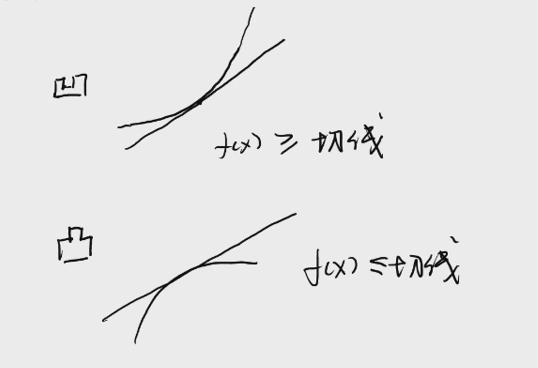 凹
f(x) ≥ 切线
凸
f(x) ≤ 切线